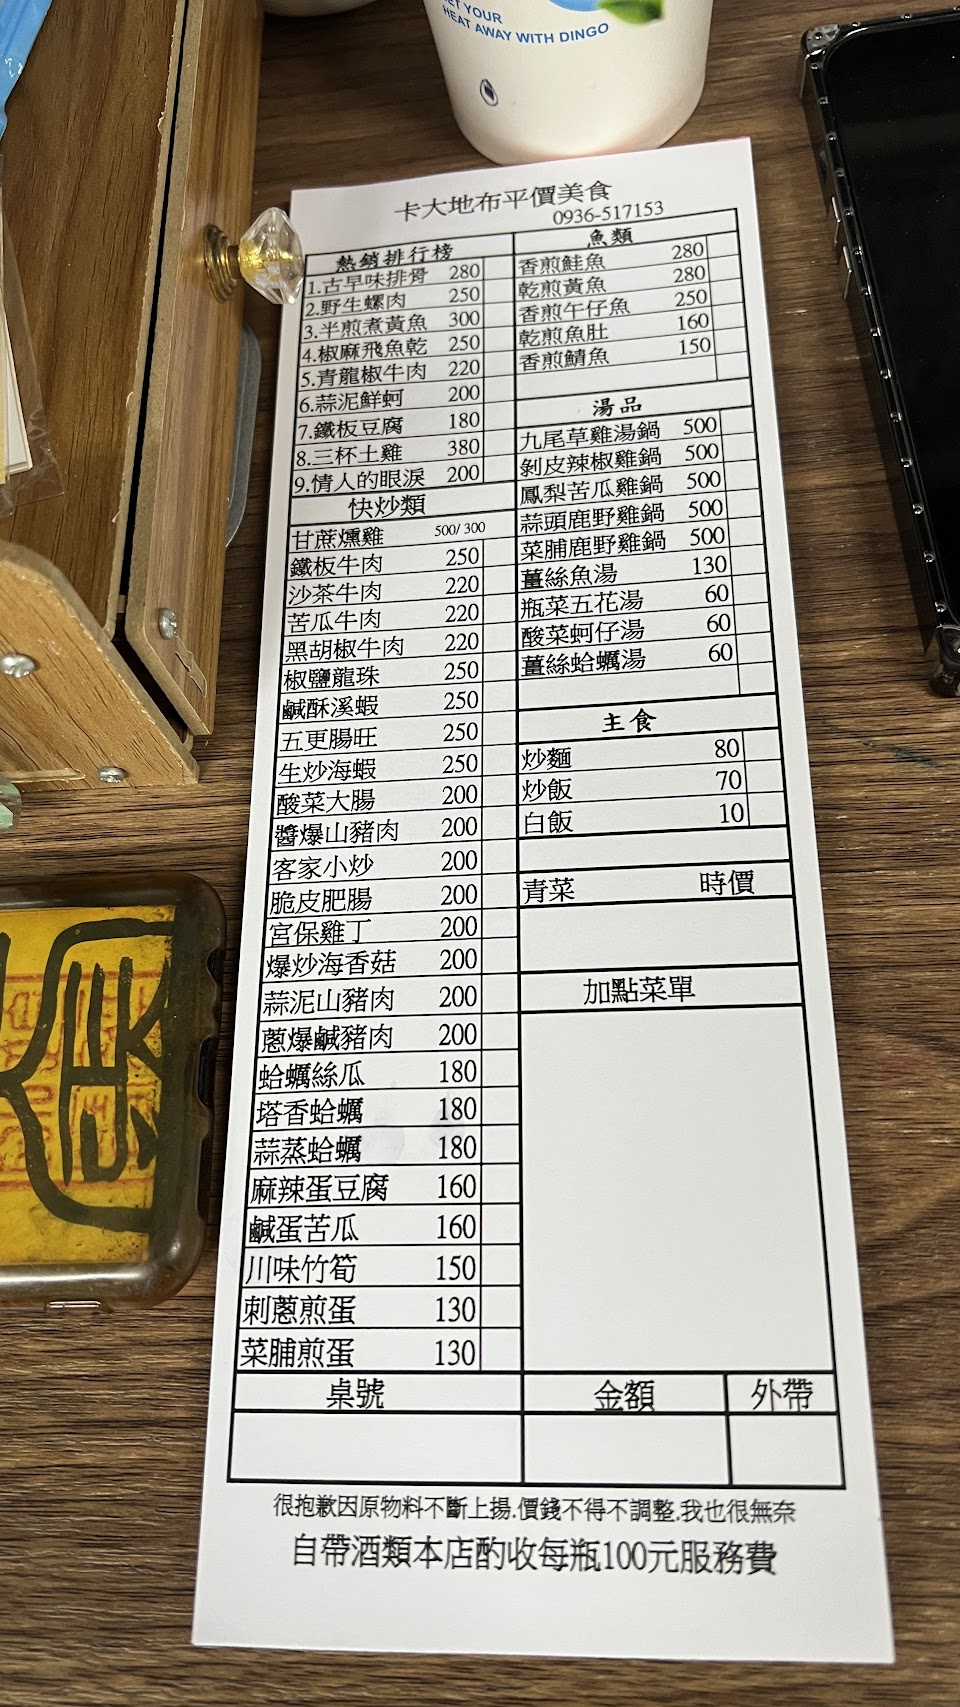 ET YOUR
HEAT AWAY WITH DINGO
卡大地布平價美食
0936-517153
熱銷排行榜
1.古早味排骨 280
2.野生螺肉 250
3.半煎煮黃魚 300
4.椒麻飛魚乾 250
5.青龍椒牛肉 220
6.蒜泥鮮蚵 200
7.鐵板豆腐 180
8.三杯土雞 380
9.情人的眼淚 200
快炒類
甘蔗燻雞 500/300
鐵板牛肉 250
沙茶牛肉 220
苦瓜牛肉 220
黑胡椒牛肉 220
椒鹽龍珠 250
鹹酥溪蝦 250
五更腸旺 250
生炒海蝦 250
酸菜大腸 200
醬爆山豬肉 200
客家小炒 200
脆皮肥腸 200
宮保雞丁 200
爆炒海香菇 200
蒜泥山豬肉 200
蔥爆鹹豬肉 200
蛤蠣絲瓜 180
塔香蛤蠣 180
蒜蒸蛤蠣 180
麻辣蛋豆腐 160
鹹蛋苦瓜 160
川味竹筍 150
刺蔥煎蛋 130
菜脯煎蛋 130
魚類
香煎鮭魚 280
乾煎黃魚 280
香煎午仔魚 250
乾煎魚肚 160
香煎鯖魚 150
湯品
九尾草雞湯鍋 500
剝皮辣椒雞鍋 500
鳳梨苦瓜雞鍋 500
蒜頭鹿野雞鍋 500
菜脯鹿野雞鍋 500
薑絲魚湯 130
瓶菜五花湯 60
酸菜蚵仔湯 60
薑絲蛤蠣湯 60
主食
炒麵 80
炒飯 70
白飯 10
青菜 時價
加點菜單
桌號 金額 外帶
很抱歉因原物料不斷上揚.價錢不得不調整.我也很無奈
自帶酒類本店酌收每瓶100元服務費